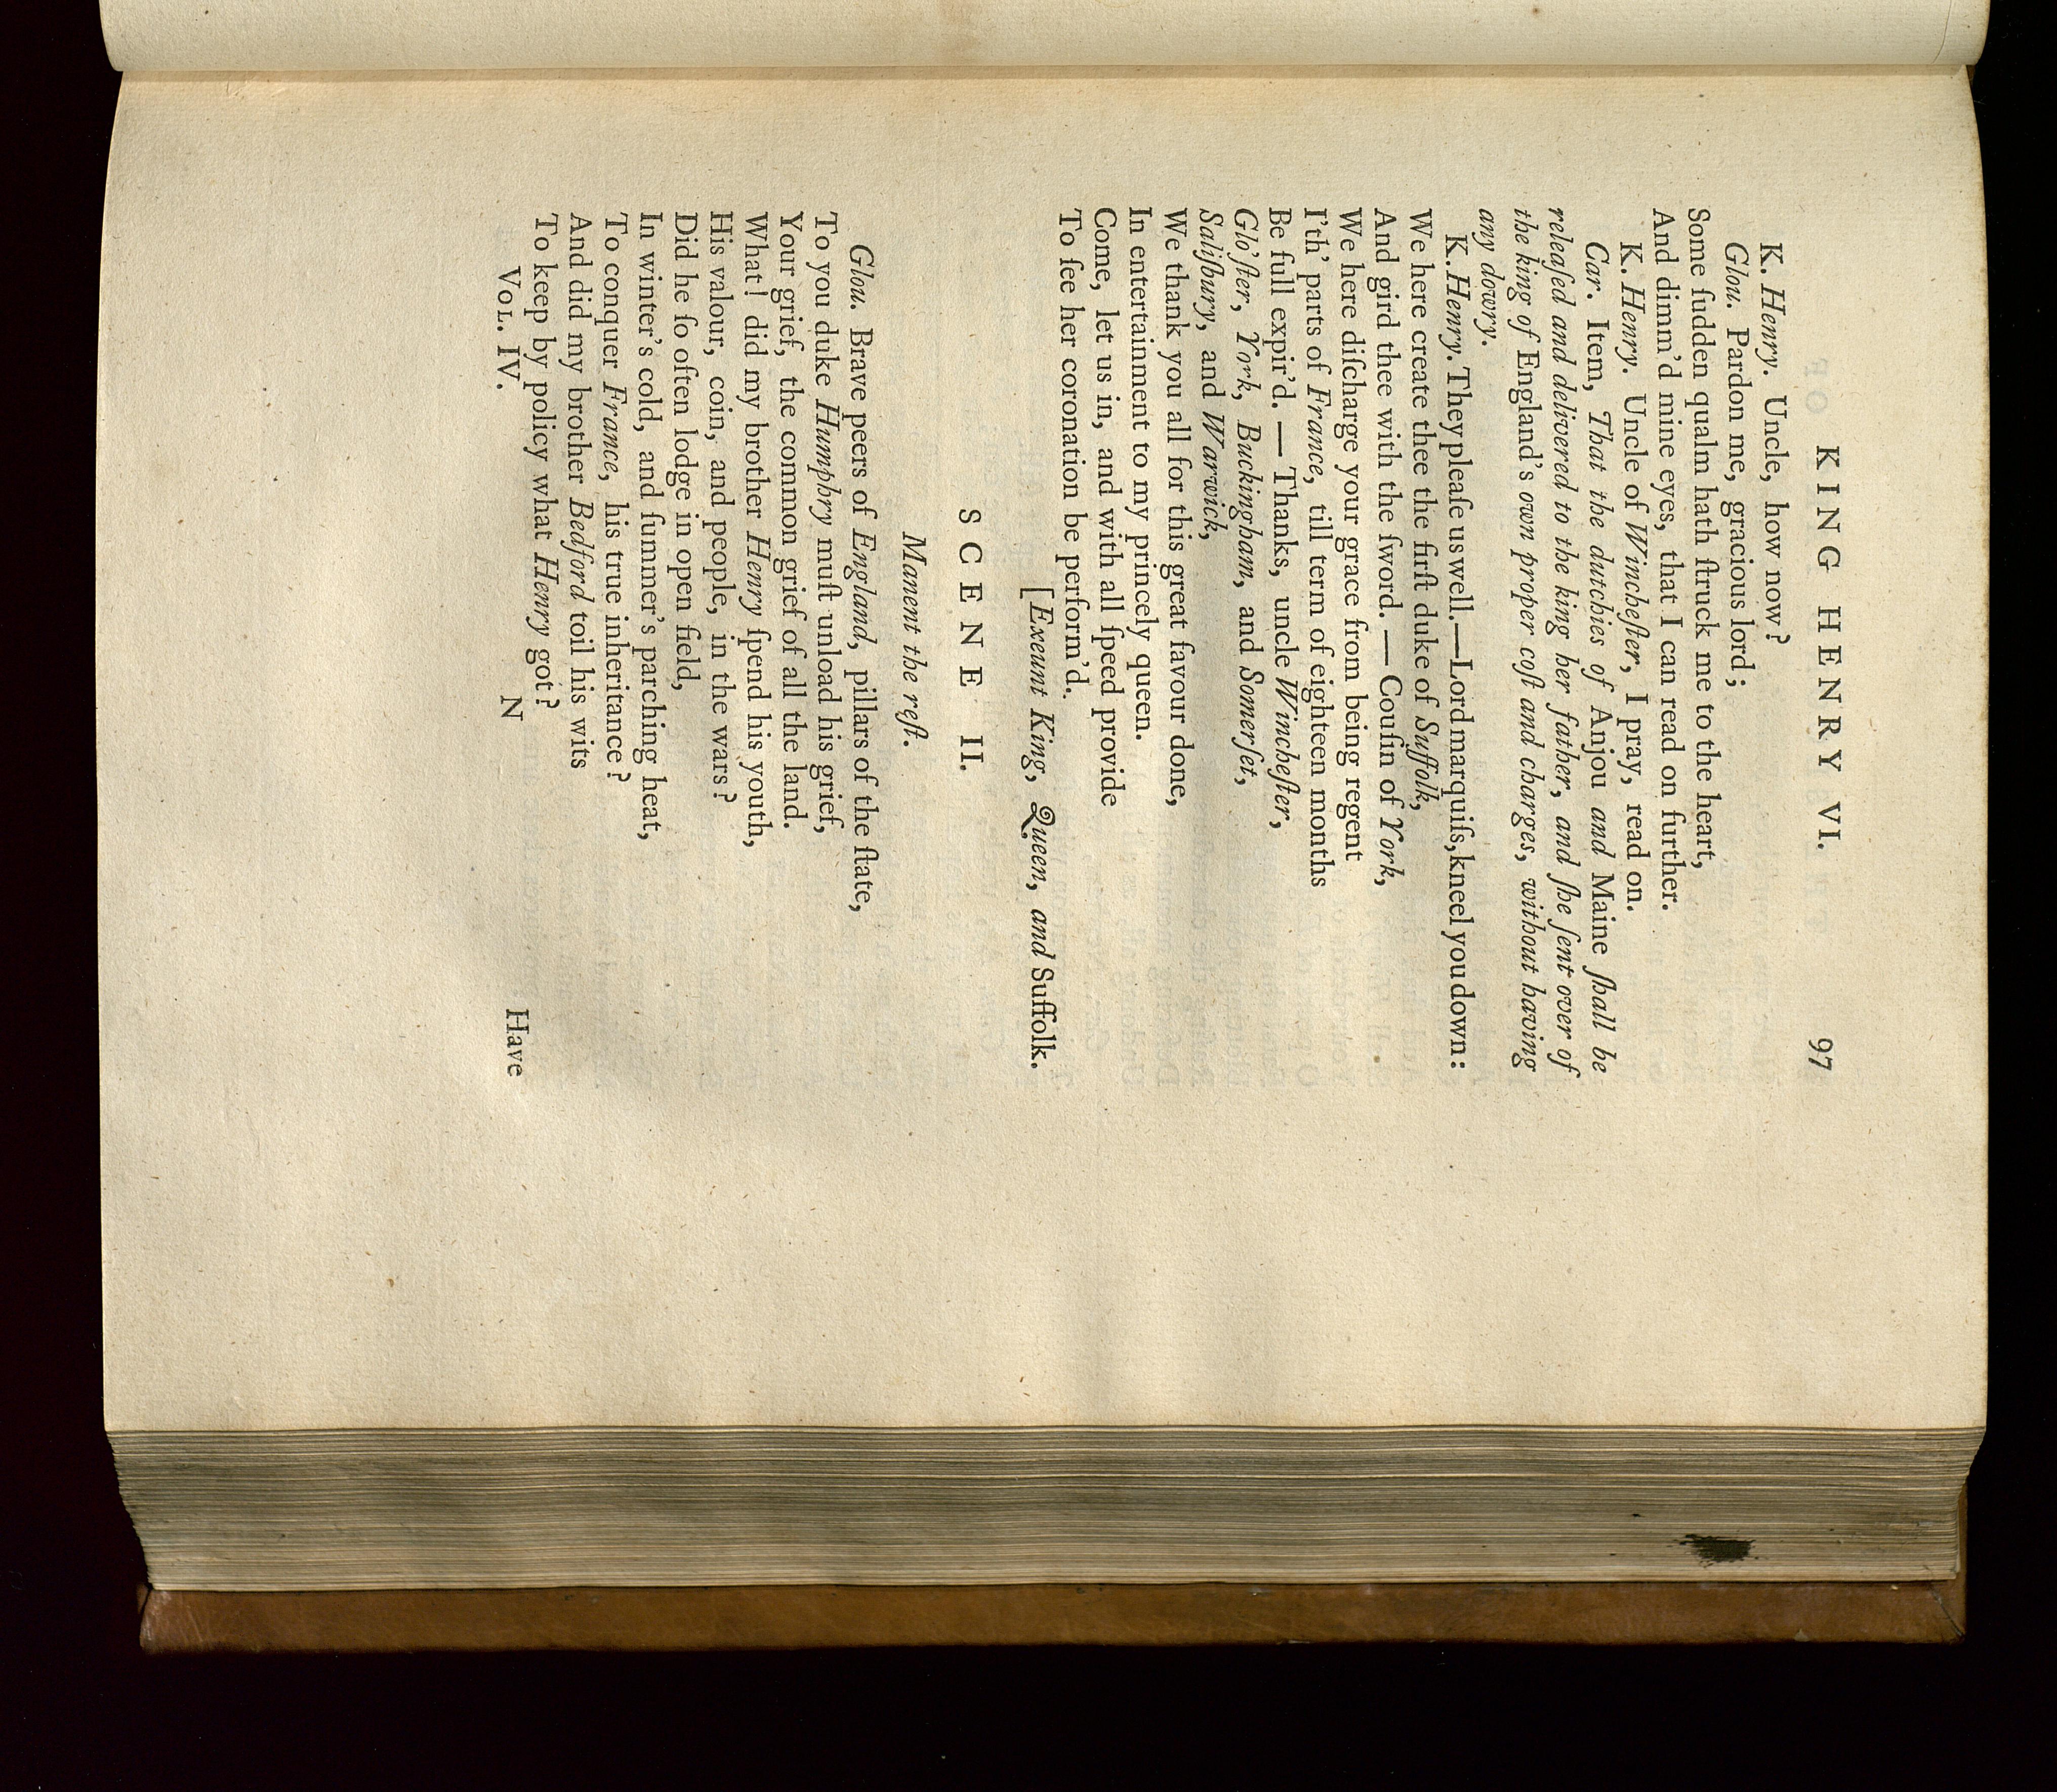 KING HENRY VI. 97
K. Henry. Uncle, how now?
Glou. Pardon me, gracious lord;
Some ſudden qualm hath ſtruck me to the heart,
And dimm'd mine eyes, that I can read on further.
K. Henry. Uncle of Wincheſter, I pray, read on.
Car. Item, That the dutchies of Anjou and Maine ſhall be
releaſed and delivered to the king her father, and ſhe ſent over of
the king of England's own proper coſt and charges, without having
any dowry.
K. Henry. They pleaſe us well.—Lord marquiſs, kneel you down:
We here create thee the firſt duke of Suffolk,
And gird thee with the ſword. — Couſin of York,
We here diſcharge your grace from being regent
I'th' parts of France, till term of eighteen months
Be full expir'd. — Thanks, uncle Wincheſter,
Glo'ſter, York, Buckingham, and Somerſet,
Saliſbury, and Warwick,
We thank you all for this great favour done,
In entertainment to my princely queen.
Come, let us in, and with all ſpeed provide
To ſee her coronation be perform'd.
[Exeunt King, Queen, and Suffolk.
SCENE II.
Manent the reſt.
Glou. Brave peers of England, pillars of the ſtate,
To you duke Humphry muſt unload his grief,
Your grief, the common grief of all the land.
What! did my brother Henry ſpend his youth,
His valour, coin, and people, in the wars?
Did he ſo often lodge in open field,
In winter's cold, and ſummer's parching heat,
To conquer France, his true inheritance?
And did my brother Bedford toil his wits
To keep by policy what Henry got?
VOL. IV. N Have